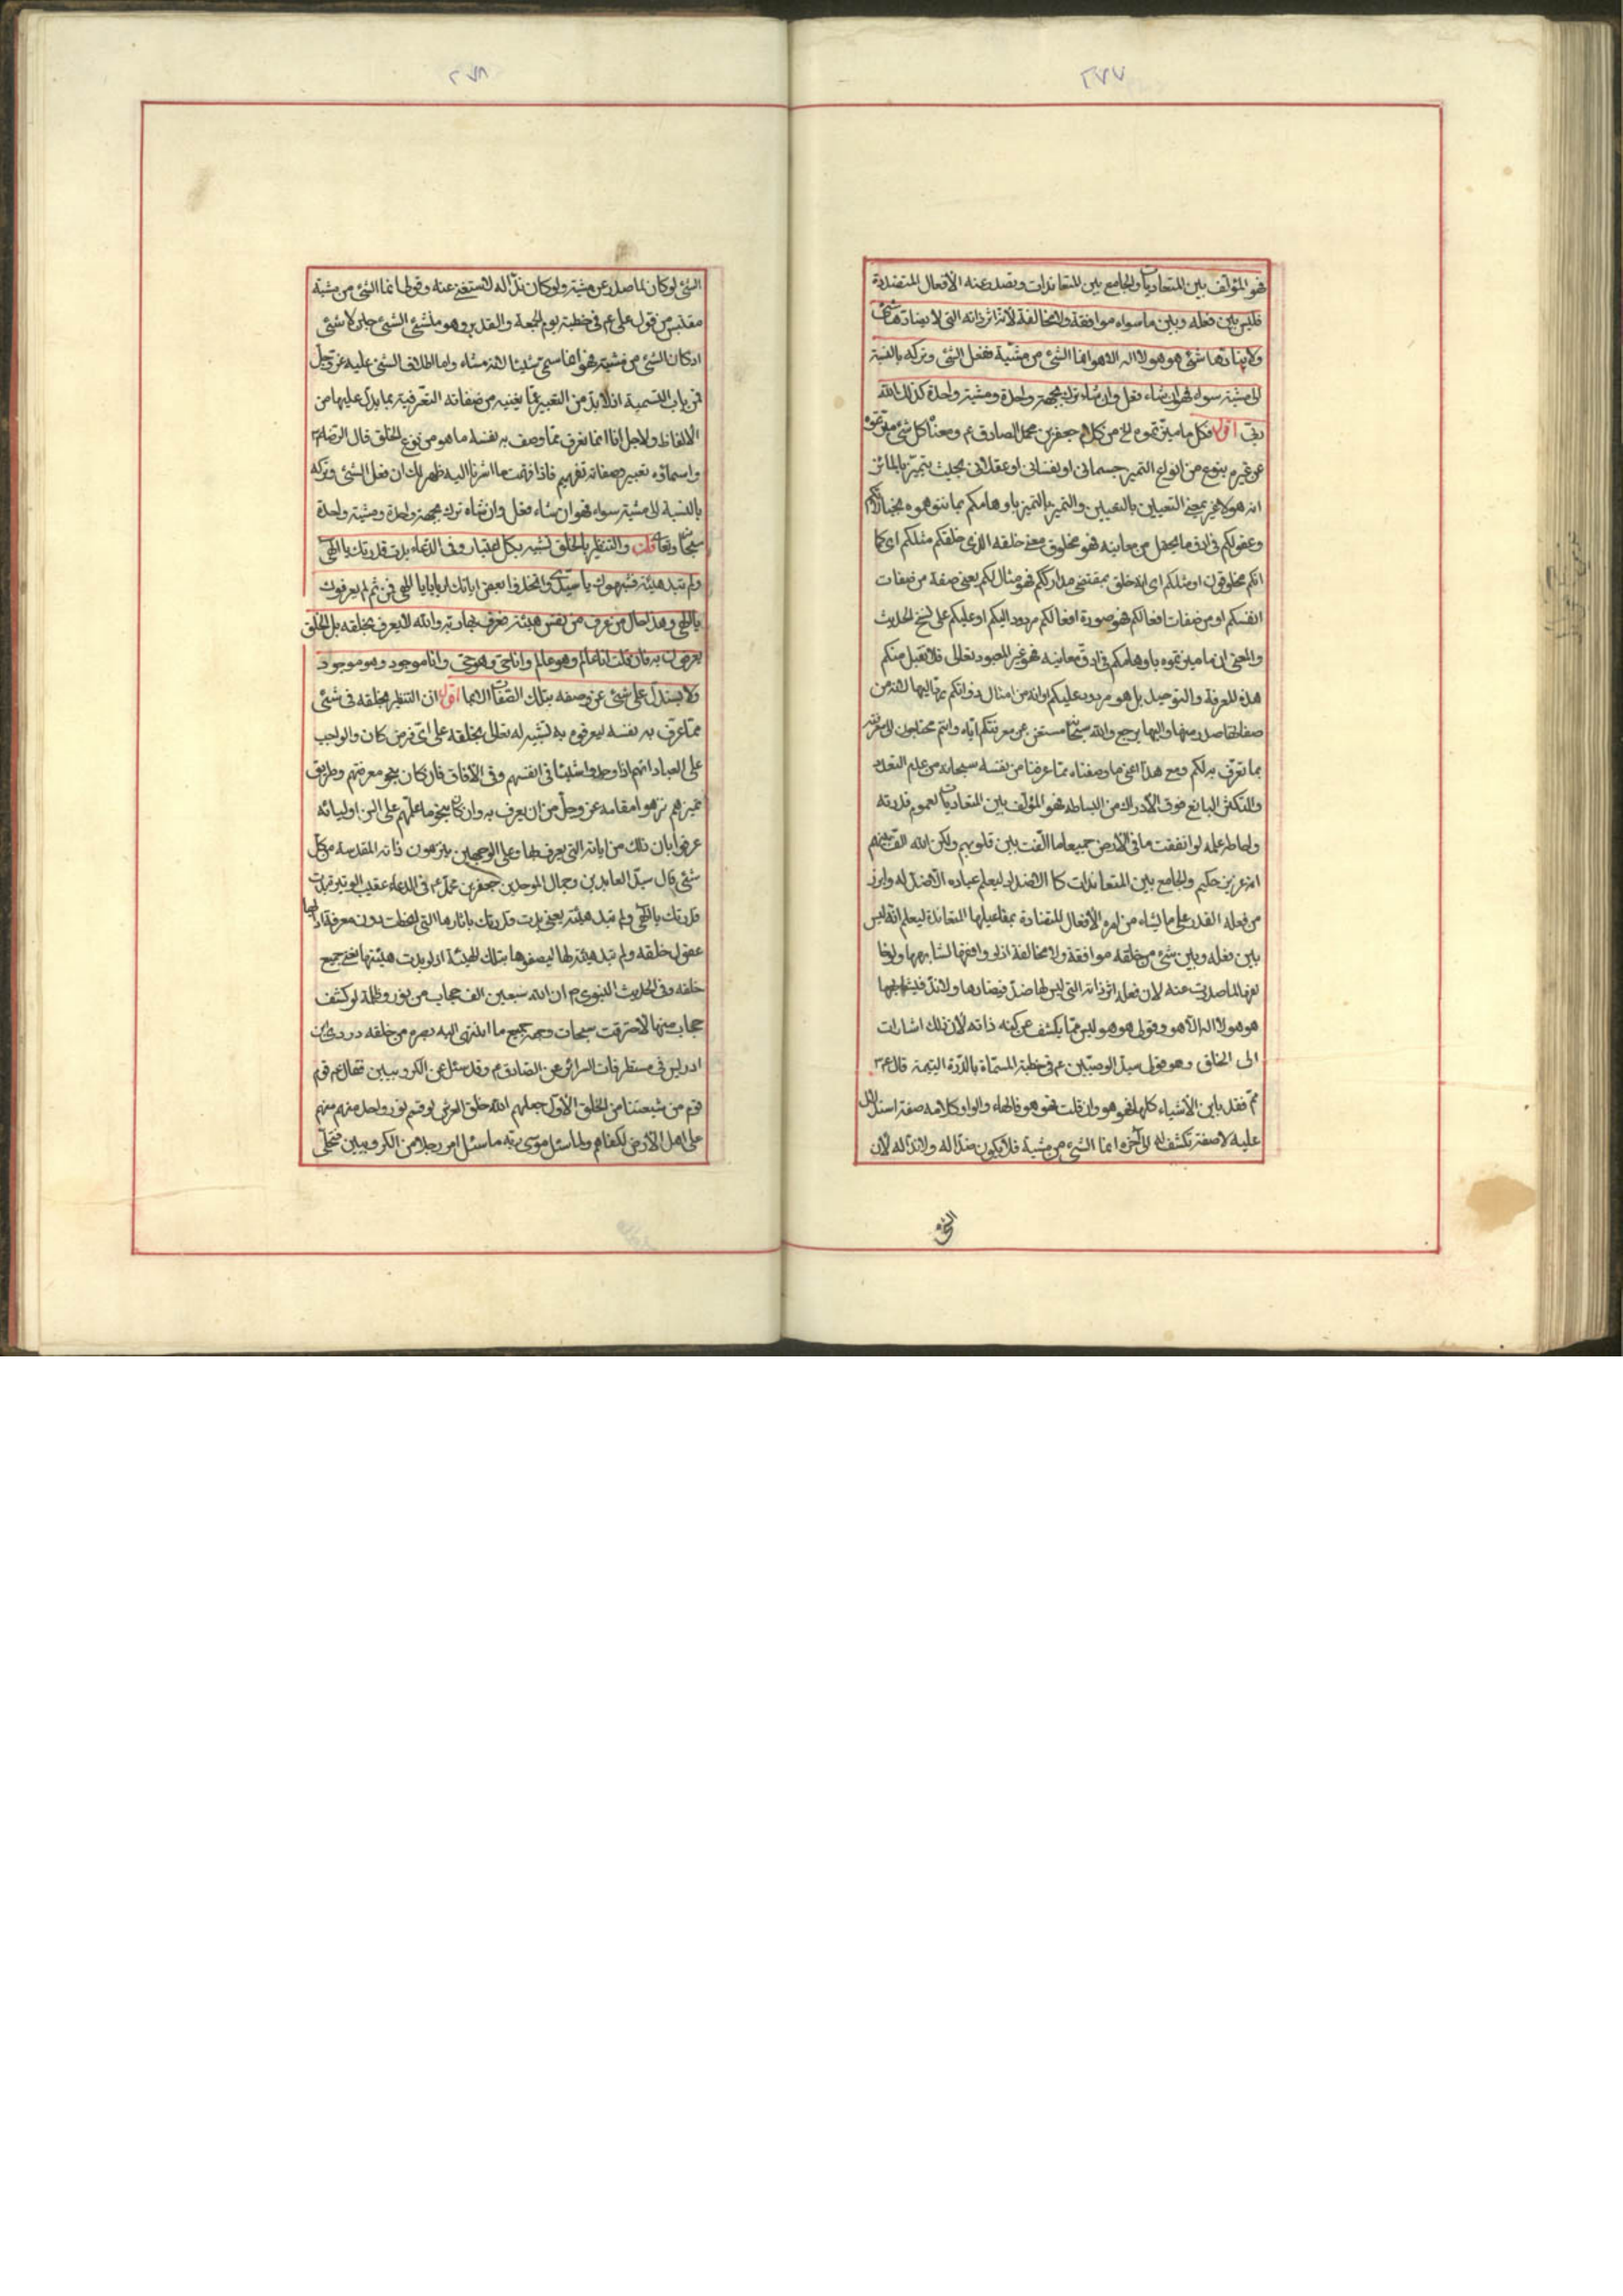 ٢٧٧
فهو المؤلف بين المتعاديات والجامع بين المتعاندات وتصدر عنه الأفعال المتضادة
فليس بين فعله وبين ما سواه موافقة ولا مخالفة لأنه اثر ذاته التى لا يضادها شئ
ولا ينادها شئ هو هو لا اله الا هو انما الشئ من مشيّة ففعل الشئ وتركه بالنسبة
الى مشيته سواء فهو ان شاء فعل وان شاء ترك بجهة واحدة ومشية واحدة كذلك الله
ربّى اقول فكل ما ميزتموه الخ من كلام جعفر بن محمد الصادق ع ومعناه كل شئ ميزتموه
عن غيره بنوع من انواع التميز جسمانى او نفسانى او عقلانى بحيث يتميز بالمائز
انه هو لا غير بمعنى التعيين بالتعيين والتميز بالتميز باوهامكم بما تتوهموه بخيالاتكم
وعقولكم فى ادق ما يحصل من معانيه فهو مخلوق معنى خلقه الذى خلقكم مثلكم اى كما
انكم مخلوقون او مثلكم اى انه خلق بمقتضى مدارككم فهو مثال لكم يعنى صفة من صفات
انفسكم او من صفات افعالكم فهو صورة افعالكم مردود اليكم او عليكم على نسخ الحديث
والمعنى ان ما ميزتموه باوهامكم فى ادق معانيه فهو غير المعبود تعالى فلا تقبل منكم
هذه المعرفة والتوحيد بل هو مردود عليكم لانه من امثال ذواتكم تمّ اليها لانه من
صفاتها صدر منها واليها يرجع والله سبحانه مستغن عن معرفتكم اياه وانتم محتاجون الى معرفته
بما تعرّف به لكم ومع هذا اعنى ما وصفناه بما عرفنا من نفسه سبحانه من عدم التعدد
والتكثر البالغ فوق الادراك من البساطة فهو المؤلف بين المتعاديات لعموم قدرته
واحاطة علمه لو انفقت ما فى الأرض جميعا ما الّفت بين قلوبهم ولكن الله الّف بينهم
انه عزيز حكيم والجامع بين المتعاندات كالاضداد ليعلم عباده ألا ضدّ له وابرز
من فعله القدر على ما يشاء من امره الأفعال المتضادة بمفاعيلها المتعاندة ليعلم انه ليس
بين فعله وبين شئ من خلقه موافقة ولا مخالفة اذ لو وافقها لشابهها ولو خا
لفها لما صدرت عنه لان فعله اثر ذاته التى ليس لها ضدّ فيضادها ولا ندّ فيشابهها
هو هو لا اله الا هو وقولى هو هو ليس مما يكشف عن كنه ذاته لأن ذلك اشارات
الى الخلق وهو قول سيد الوصيّين ع فى خطبة المسمّاة بالدّرة اليتيمة قال ع
ممّ فقد باين الأشياء كلها فهو هو وان قلت فهو هو فالهاء والواو كلامه صفة استدلال
عليه لا صفة تكشف له الى آخره انما الشئ من مشية فلا يكون ضدّا له ولا ندّا له لأن
الشئ
٢٧٨
الشئ لو كان لما صدر عن مشيته ولو كان ندّا له لاستغنى عنه وقولى انما الشئ من مشيته
مقتبس من قول على ع فى خطبة يوم الجمعة والغدير وهو منشئ الشئ حين لا شئ
اذ كان الشئ من مشيته فهو انما سمى شيئا لانه مشاء واما اطلاق الشئ عليه عزّ وجلّ
فمن باب التسمية اذ لا بدّ من التعبير عمّا يعنيه من صفاته التعرّفية بما يدلّ عليها من
الالفاظ ولاجل انا انما نعرف بما وصف به نفسه ما هو من نوع الخلق قال الرضا ع
واسماؤه تعبير وصفاته تفهيم فاذا فهمت ما اشرنا اليه ظهر لك ان فعل الشئ وتركه
بالنسبة الى مشيته سواء فهو ان شاء فعل وان شاء ترك بجهة واحدة ومشية واحدة
سبحانه وتعالى قلت والتنظير بالخلق تشبيه بكل اعتبار وفى الدعاء بدت قدرتك يا الهى
ولم تبد هيئة فشبهوك يا سيّدى واتخذوا بعض اياتك اربابا يا الهى فمن ثم لم يعرفوك
يا الهى وهذا حال من عرف من نفس هيئة فعرف بها ربه والله لا يعرف بخلقه بل الخلق
يعرفون به فان قلت انا عالم وهو عالم وانا حى وهو حى وانا موجود وهو موجود
ولا يستدل على شئ عن وصفه بتلك الصفات اقول ان التنظير بخلقه فى شئ
مما عرّف به نفسه ليعرفوه به تشبيه له تعالى بخلقه على اى فرض كان والواجب
على العباد انهم اذا وجدوا شيئا فى انفسهم وفى الآفاق فان كان بنحو معرفتهم وطريق
تميزهم نزهوا مقامه عز وجل من ان يعرف به وان كان بنحو ما علّمهم على السن اوليائه
عرفوا بان ذلك من اياته التى يعرف بها وعلى الوجهين ينزهون ذاته المقدسة من كل
شئ قال سيد العابدين وجمال الموحدين جعفر بن محمد ع فى الدعاء عقيب الوتيرة بدت
قدرتك يا الهى ولم تبد هيئة يعنى بدت قدرتك باثارها التى
عقول خلقه ولم تبد هيئة لها ليصفوها بتلك الهيئة اذ لو بدت هيئتها جميع
خلقه وفى الحديث النبوى ص ان لله سبعين الف حجاب من نور وظلمة لو كشف
حجاب منها لاحترقت سبحات وجهه جميع ما انتهى اليه بصره من خلقه وروى ابن
ادريس فى مستطرفات السرائر عن الصادق ع وقد سئل عن الكروبيين فقال ع قوم
قوم من شيعتنا من الخلق الأول جعلهم الله خلف العرش لو قسم نور واحد منهم منهم
على اهل الأرض لكفاهم ولما سئل موسى ربه ما سئل امر رجلا من الكروبيين فتجلّى